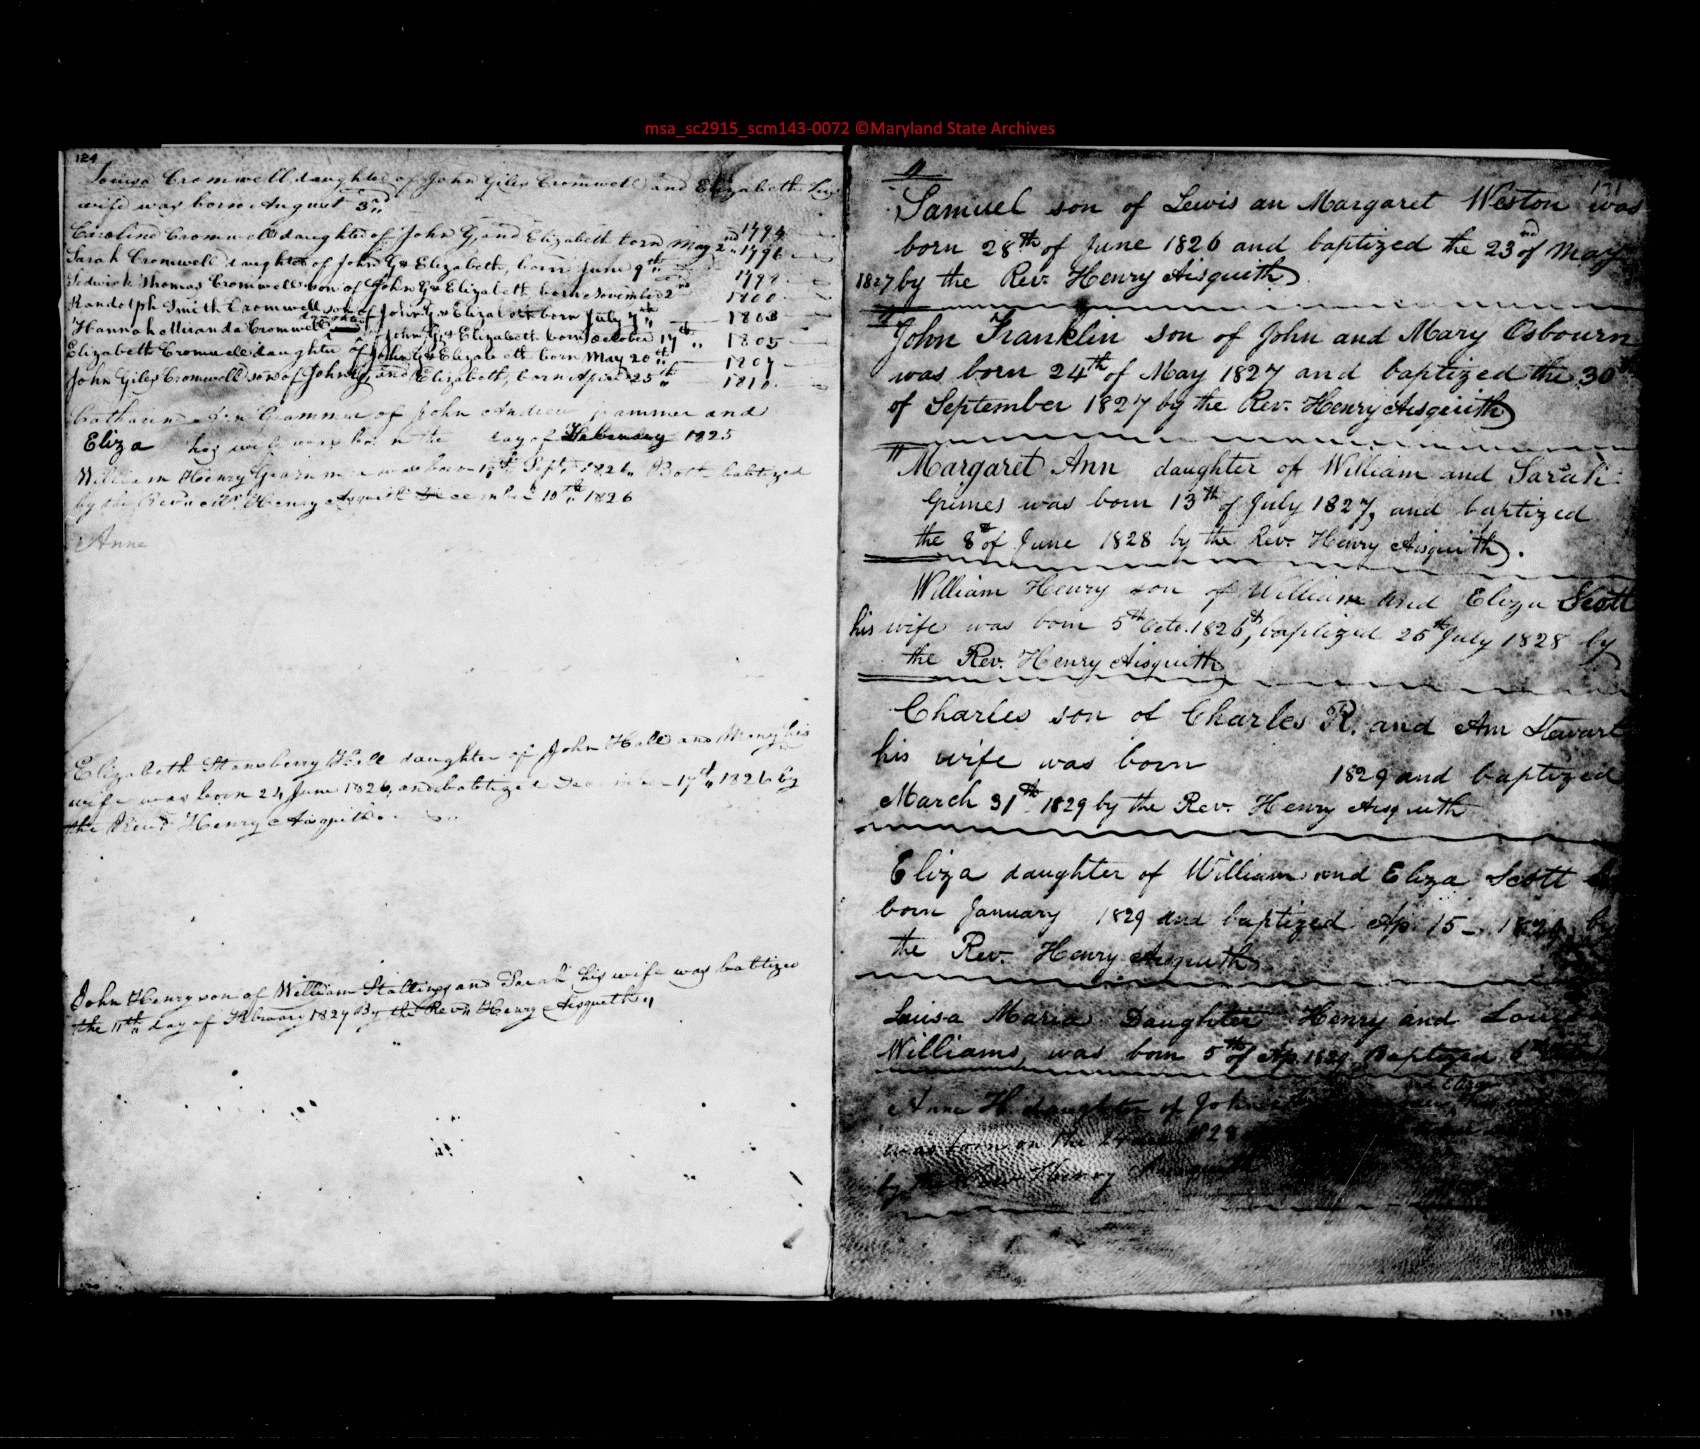 msa_sc2915_scm143-0072 ©Maryland State Archives
124
Louisa Cromwell, daughter of John Giles Cromwell and Elizabeth
wife was born August 3rd
1794
Caroline Cromwell daughter of John G, and Elizabeth born May 2nd 1796
Sarah Cromwell daughter of John G & Elizabeth, born June 9th 1798
Sedwick Thomas Cromwell son of John G & Elizabeth born November 2nd 1800
Randolph Smith Cromwell son of John G & Elizabeth born July 7th 1803
daughter
Hannah Miranda Cromwell of John G & Elizabeth born October 17th 1805
Elizabeth Cromwell daughter of John G & Elizabeth born May 20th 1807
John Giles Cromwell son of John G, and Elizabeth, born April 25th 1810
Catharine Ann Grammer of John Andrew Grammer and
Eliza his wife was born the day of February 1825
William Henry Grammer was born 17th Sept 1826 Both babtized
by the Revd Henry Aisquith December 10th 1826
Anne
Elizabeth Stansberry Hall daughter of John Hall and Mary his
wife was born 24 June 1826, and babtized December 17th 1826 by
the Revd Henry Aisquith
John Henry son of William Stallings and Sarah his wife was babtized
the 11th day of February 1827 By the Revd Henry Aisquith
131
Samuel son of Lewis an Margaret Weston was
born 28th of June 1826 and baptized the 23rd of May
1827 by the Rev. Henry Aisquith
John Franklin son of John and Mary Osbourn
was born 24th of May 1827 and baptized the 30th
of September 1827 by the Rev. Henry Aisquith
Margaret Ann daughter of William and Sarah
Grimes was born 13th of July 1827, and baptized
the 8th of June 1828 by the Rev. Henry Aisquith.
William Henry son of William and Eliza Scott
his wife was born 5th Octo. 1826, baptized 25th July 1828 by
the Rev. Henry Aisquith
Charles son of Charles R. and Ann Stewart
his wife was born 1829 and baptized
March 31th 1829 by the Rev. Henry Aisquith
Eliza daughter of William and Eliza Scott
born January 1829 and baptized Ap. 15 - 1829 by
the Rev. Henry Aisquith
Louisa Maria Daughter Henry and Louisa
Williams, was born 5th of Ap. 1829 Baptized 6th
and Eliza
Anne H. daughter of John
was born on the 24 1828
by the Rev Henry Aisquith